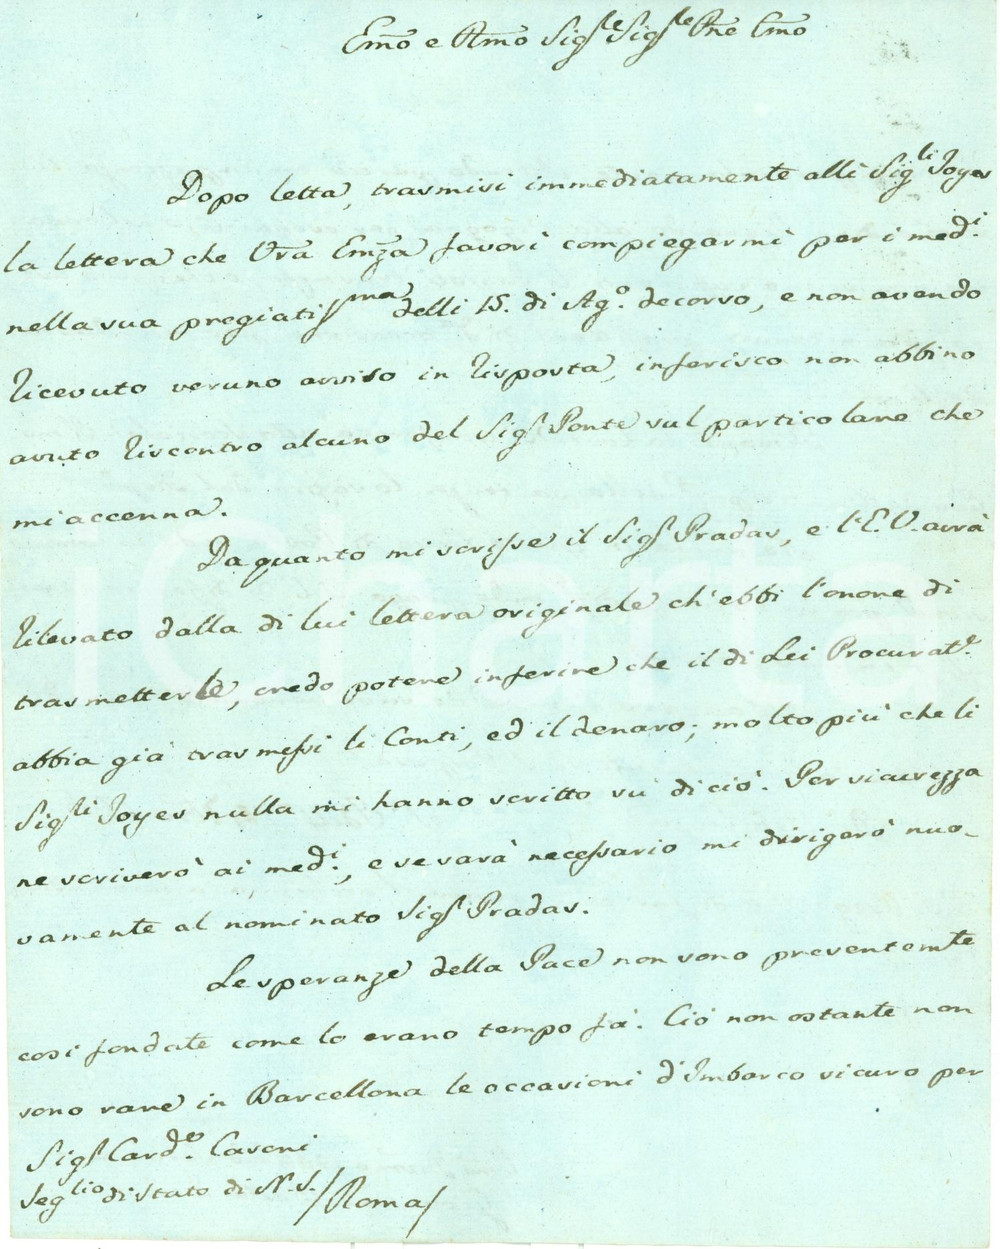 Emo e Rmo Sig.re Sig.re Pne Cmo
Dopo letta, trasmisi immediatamente alli Sig.li Joyes
la lettera che Vra Emza favorì compiegarmi per i med.i
nella sua pregiatissma delli 15. di Ag.o decorso, e non avendo
ricevuto veruno avviso in risposta, inferisco non abbino
avuto riscontro alcuno del Sig.r Ponte sul particolare che
mi accenna.
Da quanto mi scrisse il Sig.r Pradas, e l'E.V. avrà
rilevato dalla di lui lettera originale ch'ebbi l'onore di
trasmetterle, credo potere inferire che il di Lei Procurat.e
abbia già trasmessi li Conti, ed il denaro; molto più che li
Sig.li Joyes nulla mi hanno scritto sù di ciò. Per sicurezza
ne scriverò ai med.i, e se sarà necessario mi dirigerò nuo-
vamente al nominato Sig.r Pradas.
Le speranze della Pace non sono presentemte
così fondate come lo erano tempo fà. Ciò non ostante non
sono rare in Barcellona le occasioni d'Imbarco sicuro per
Sig.r Card.e Casoni
Seg.rio di Stato di N.S. /Roma/
iCharta